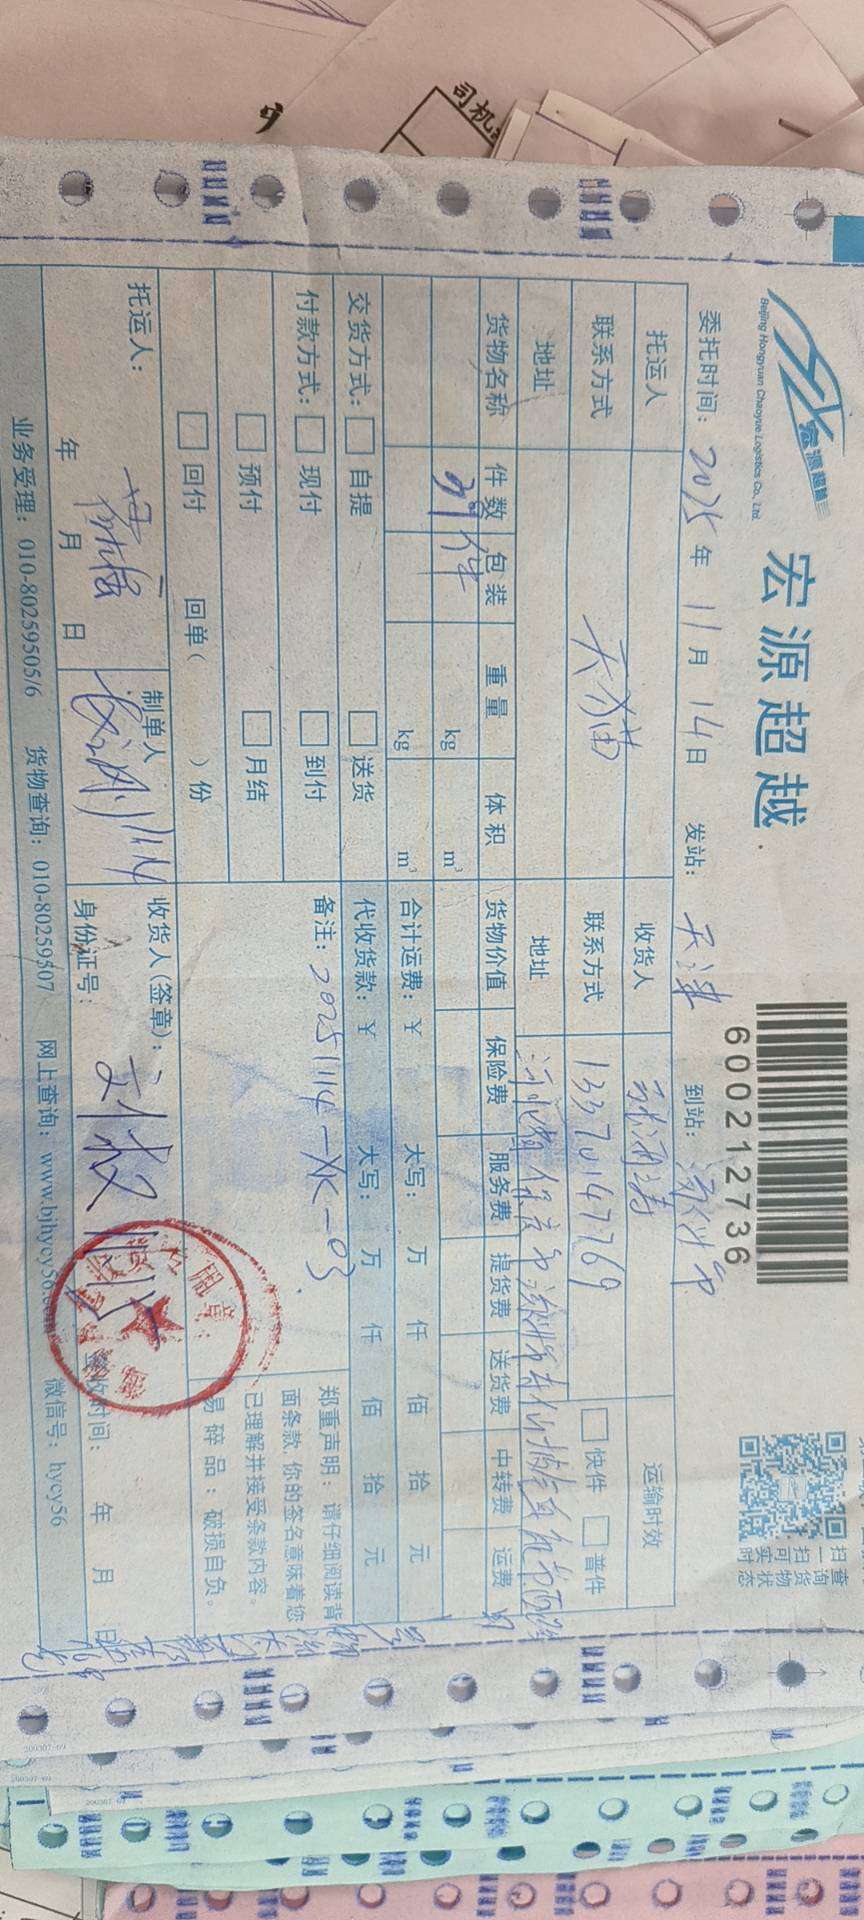 司机
宏源超越
Beijing Hongyuan Chaoyue Logistics Co., Ltd
宏源超越
6000212736
扫一扫可实时
查询货物状态
委托时间: 2025 年 11 月 14 日 发站: 天津 到站: 涿州市
托运人 收货人 运输时效
联系方式 天猫 联系方式 13370147769 快件 普件
地址 地址 河北省保定市涿州市
货物名称 件数 包装 重量 体积 货物价值 保险费 服务费 提货费 送货费 中转费 运费
39件 kg m³
kg m³ 合计运费: ¥ 大写: 万 仟 佰 拾 元
交货方式: 自提 送货 代收货款: ¥ 大写: 万 仟 佰 拾 元
付款方式: 现付 到付 备注: 20251114-XK-03
预付 月结
回付 回单( )份
郑重声明: 请仔细阅读背
面条款, 你的签名意味着您
已理解并接受条款内容。
易碎品: 破损自负。
托运人: 制单人 收货人(签章):
年 月 日 11/14 身份证号: 签收时间: 年 月 日
业务受理: 010-80259505/6 货物查询: 010-80259507 网上查询: www.bjhycy56.com 微信号: hycy56